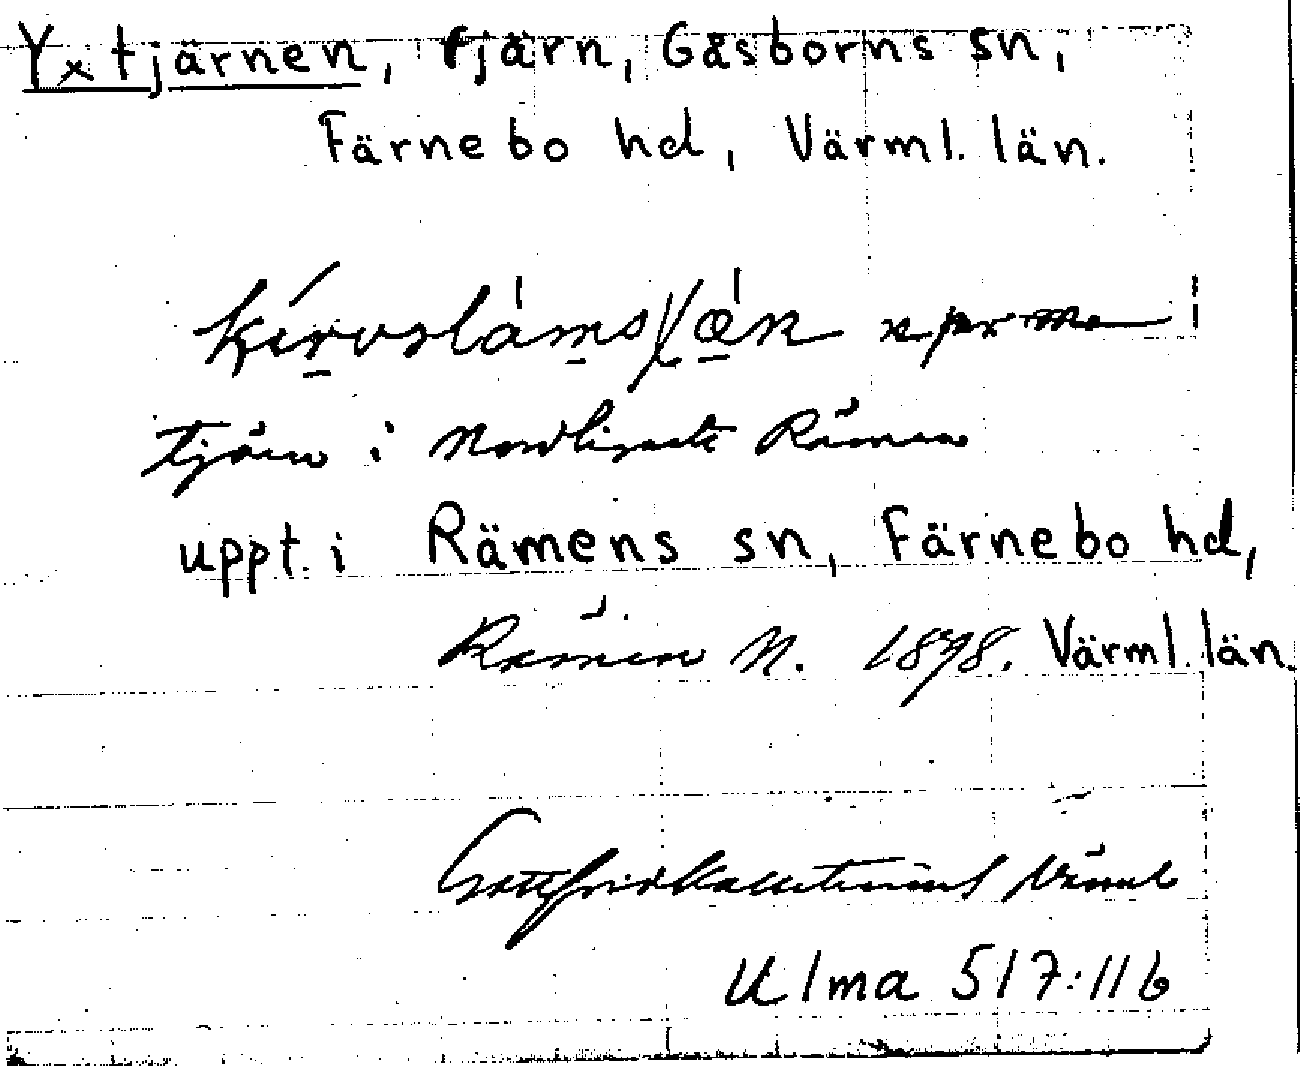 Yxtjärnen, tjärn, Gåsborns sn,
Färnebo hd, Värml. län.
n pr m
tjärn i Nordligaste Rämen
uppt. i Rämens sn, Färnebo hd,
Rämen N. 1898. Värml. län.
Gottfrid Kallstenius Värml
Ulma 517:116